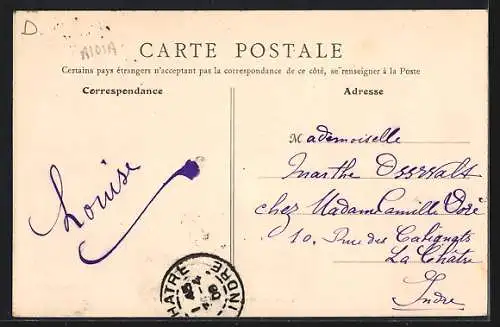 D.
CARTE POSTALE
Certains pays étrangers n'acceptant pas la correspondance de ce côté, se renseigner à la Poste
Correspondance
Adresse
Mademoiselle
Marthe
chez Madame Camille Doré
10. Rue des Cabignats
La Châtre
Indre
Louise
HATRE
INDRE